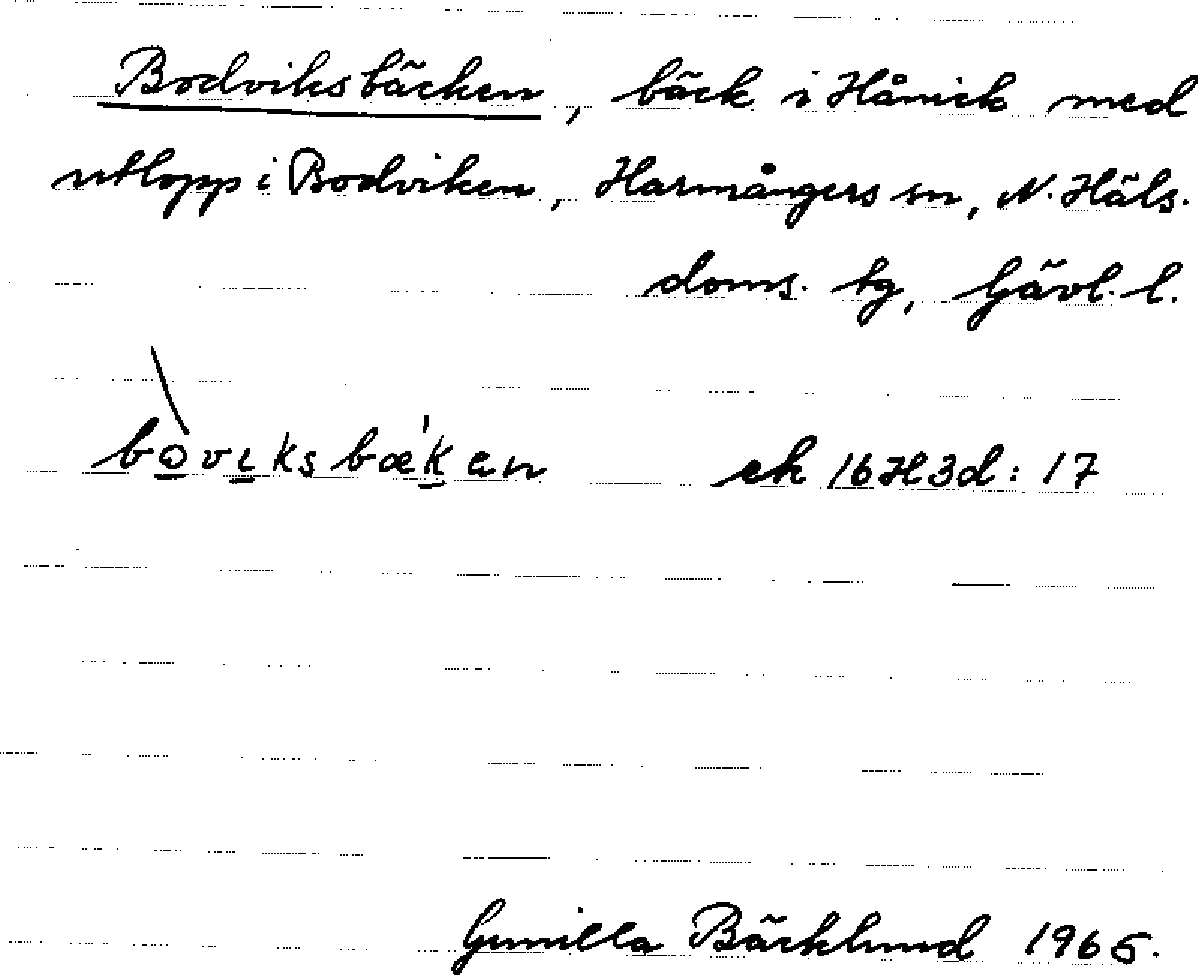 Bodviksbäcken, bäck i Hånick med
utlopp i Bodviken, Harmångers sn, N. Häls.
doms. tg, Gävl. l.
bò̱vɩ̱ksbæ'ḵen ek 16H3d: 17
Gunilla Bäcklund 1966.